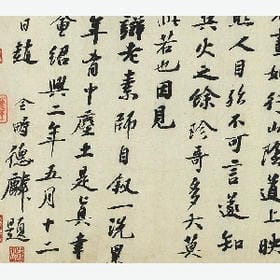 如行山陰道上映
人目殆不可言遂知
兵火之餘珍哥多大莫
此若也因見
老素師自敘一洗累
年胷中塵土是真幸
會紹興二年五月十二
日趙令畤德麟題